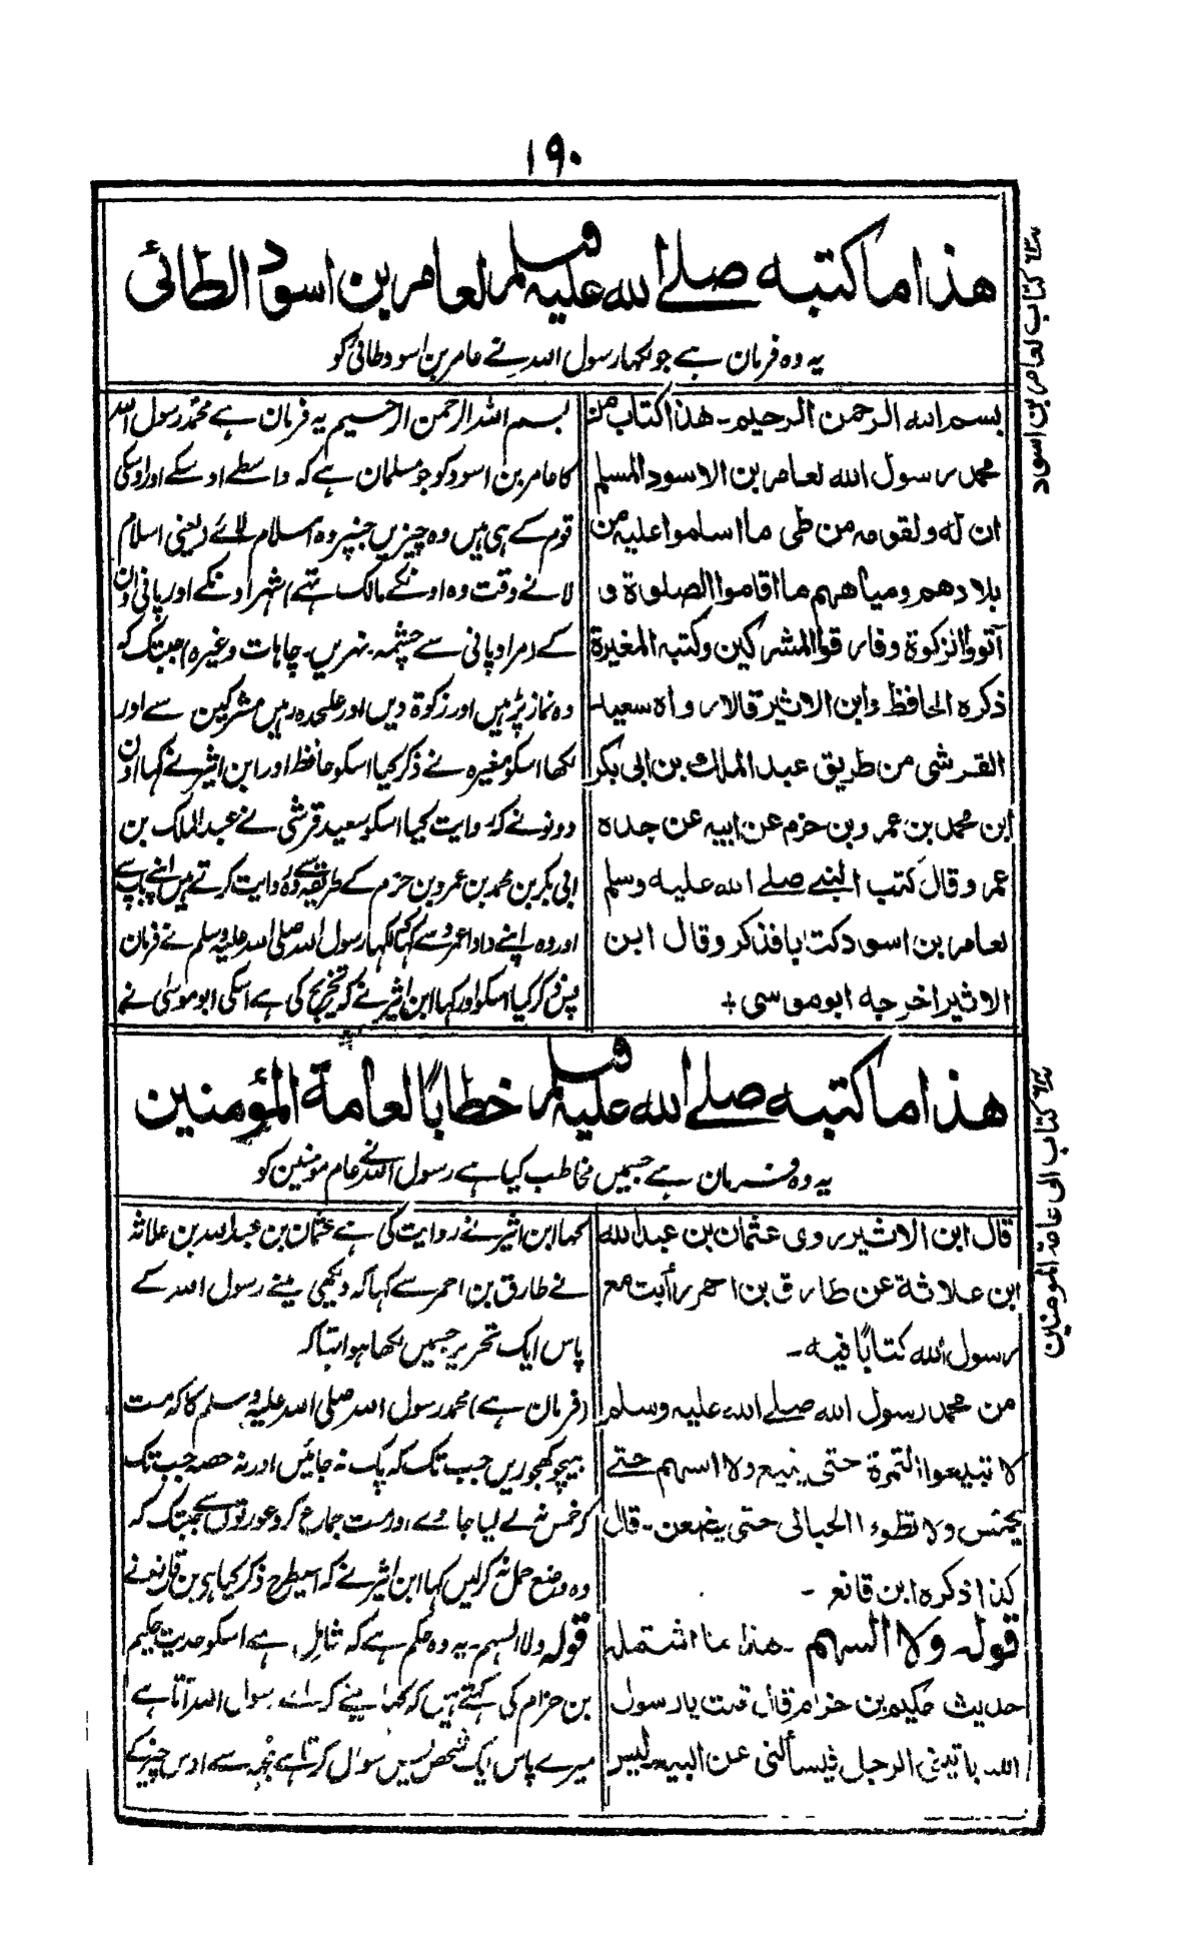 ١٩٠
هذا ما كتبه صلے الله عليه وسلم لعامر بن اسود الطائی
یہ وہ فرمان ہے جو لکھا رسول اللہ نے عامر بن اسود طائی کو
بسم الله الرحمن الرحيم ۔ هذا كتاب من
محمد رسول الله لعامر بن الاسود المسلم
ان له ولقومه من طی ما اسلموا عليه من
بلادهم ومياههم ما اقاموا الصلوة و
آتوا الزكوة وفارقوا المشركين وكتبه المغيرة
ذكره الحافظ وابن الاثير قالا رواه سعيد
القرشی من طريق عبد الملك بن ابی بكر
ابن محمد بن عمرو بن حزم عن ابيه عن جده
عمرو قال كتب النبے صلے الله عليه وسلم
لعامر بن اسود كتابا فذكر وقال ابن
الاثير اخرجه ابو موسى +
بسم اللہ الرحمن الرحیم یہ فرمان ہے محمد رسول اللہ
کا عامر بن اسود کو جو مسلمان ہے کہ واسطے اوسکے اور اوسکی
قوم کے ہی ہیں وہ چیزیں جنپر وہ اسلام لائے (یعنی اسلام
لانے وقت وہ اونکے مالک تہے) شہر اونکے اور پانی اون
کے (مراد پانی سے چشمہ۔ نہریں۔ چاہات وغیرہ) جبتک کہ
وہ نماز پڑہیں اور زکوۃ دیں اور علیحدہ رہیں مشرکین سے اور
لکھا اسکو مغیرہ نے ذکر کیا اسکو حافظ اور ابن اثیر نے کہا اون
دونو نے کہ روایت کیا اسکو سعید قرشی نے عبد الملک بن
ابی بکر بن محمد بن عمرو بن حزم کے طریقہ سے وہ روایت کرتے ہیں اپنے باپ سے
اور وہ اپنے دادا عمرو سے کہا کہ لکھا رسول اللہ صلی اللہ علیہ وسلم نے فرمان
پس ذکر کیا اسکو اور کہا ابن اثیر نے کہ تخریج کی ہے اسکی ابو موسیٰ نے
هذا ما كتبه صلے الله عليه وسلم خطابًا لعامة المؤمنين
یہ وہ فرمان ہے جسمیں مخاطب کیا ہے رسول اللہ نے عام مومنین کو
قال ابن الاثير روى عثمان بن عبد الله
ابن علاثة عن طارق بن احمر رأيت مع
رسول الله كتابًا فيه ۔
من محمد رسول الله صلے الله عليه وسلم
لا تبيعوا الثمرة حتى ينيع ولا السهم حتے
يخمس ولا تطوءا الحبالى حتى يضعن ۔ قال
كذا ذكره ابن قانع ۔
قوله ولا السهم ۔ هذا ما اشتمله
حديث حكيم بن حزام قال قلت يا رسول
الله ياتينی الرجل فيسألنی عن البيع ليس
کہا ابن اثیر نے روایت کی ہے عثمان بن عبد اللہ بن علاثہ
نے طارق بن احمر سے کہا کہ دیکھی مینے رسول اللہ کے
پاس ایک تحریر جسمیں لکھا ہوا تہا کہ
(فرمان ہے) محمد رسول اللہ صلی اللہ علیہ وسلم کا کہ مت
بیچو کھجوریں جب تک کہ پک نہ جائیں اور نہ حصہ جب تک
کہ خمس نہ لے لیا جاوے اور مت جماع کرو عورتوں سے جبتک کہ
وہ وضع حمل نہ کرلیں کہا ابن اثیر نے کہ اسیطرح ذکر کیا ہے ابن قانع نے
قوله ولا السہم ۔ یہ وہ حکم ہے کہ شامل ہے اسکو حدیث حکیم
بن حزام کی کہتے ہیں کہ کہا مینے کہ اے رسول اللہ آتا ہے
میرے پاس ایک شخص پس سوال کرتا ہے مجھ سے اوس چیز کے
كتاب لعامر بن اسود
كتاب الى عامة المومنين